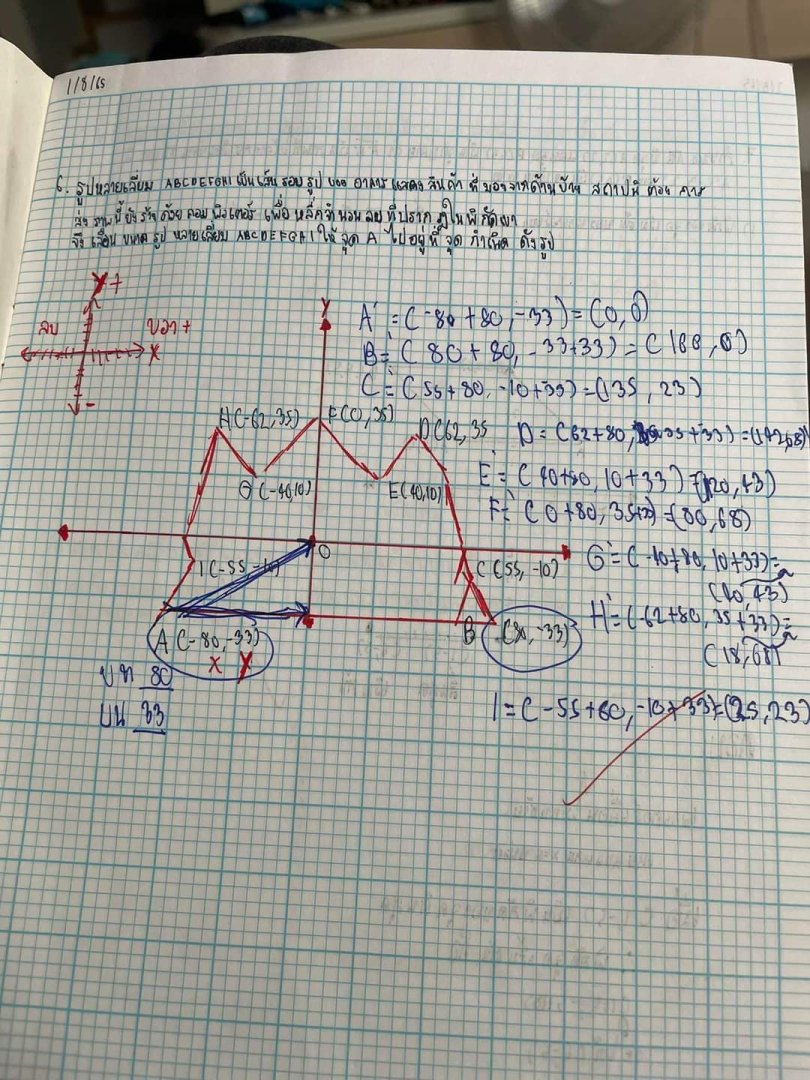 1/8/65
6. รูปหลายเหลี่ยม ABCDEFGHI เป็นเส้นรอบรูป ของ อาคารแสดงสินค้า ที่มองจากด้านข้าง สถาปนิก ต้องการ
ส่งภาพนี้ไปสร้างด้วยคอมพิวเตอร์ เพื่อ หลีกจำนวนลบที่ปรากฏในพิกัด
จึงเลื่อน ขนาด รูป หลายเหลี่ยม ABCDEFGHI ให้ จุด A ไปอยู่ที่ จุด กำเนิด ดังรูป
Y +
ลบ
ขวา +
X
-
Y
A' = (-80+80, -33) = (0,0)
B' = (80+80, -33+33) = (160,0)
C' = (55+80, -10+33) = (135, 23)
H(-62,35)
F(0,35)
D(62,35
D = (62+80, 35+33) = (142,68)
G(-40,10)
E(40,10)
E' = (40+80, 10+33) = (120,43)
F' = (0+80, 35+33) = (80,68)
O
I(-55,-10)
C(55,-10)
G' = (-40+80, 10+33) =
(40,43)
H' = (-62+80, 35+33) =
(18,68)
A (-80,-33)
B (80,-33)
X Y
80
บน 33
I = (-55+80, -10+33) = (25,23)